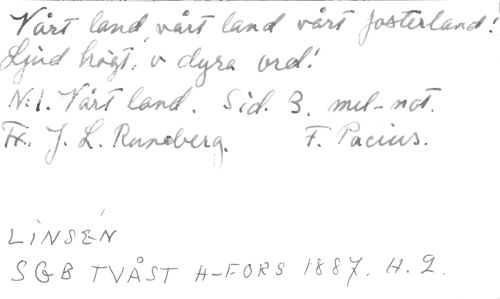 Vårt land, vårt land vårt fosterland!
Ljud högt, o dyra ord!
N:1. Vårt land. Sid. 3. mel-not.
Tx. J. L. Runeberg. F. Pacius.
LINSÉN
SGB TVÅST H-FORS 1887. H. 2.